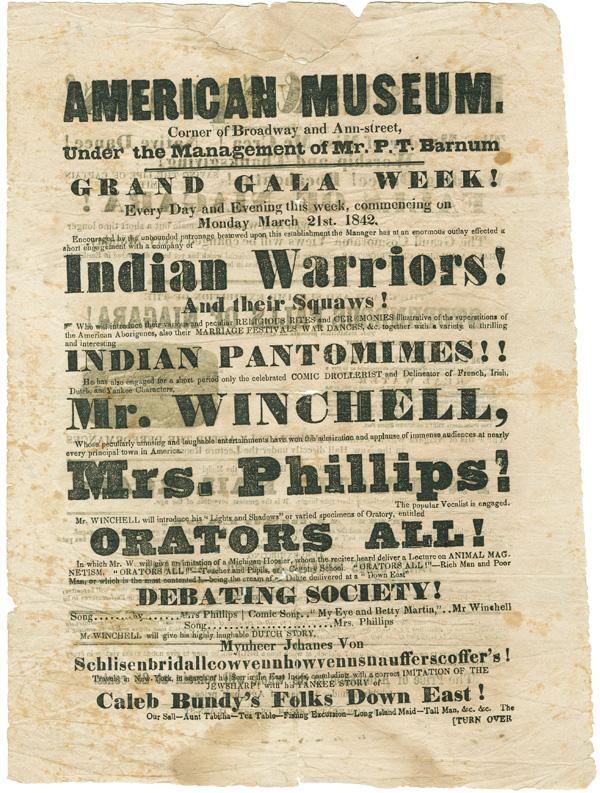 AMERICAN MUSEUM.
Corner of Broadway and Ann-street,
Under the Management of Mr. P. T. Barnum
GRAND GALA WEEK!
Every Day and Evening this week, commencing on
Monday March 21st. 1842.
Encouraged by the unbounded patronage bestowed upon this establishment the Manager has at an enormous outlay effected a
short engagement with a company of
Indian Warriors!
And their Squaws!
Who will introduce their various and peculiar RELIGIOUS RITES and CEREMONIES illustrative of the superstitions of
the American Aborigenes, also their MARRIAGE FESTIVALS, WAR DANCES, &c. together with a variety of thrilling
and interesting
INDIAN PANTOMIMES!!
He has also engaged for a short period only the celebrated COMIC DROLLERIST and Delineator of French, Irish,
Dutch, and Yankee Characters,
Mr. WINCHELL,
Whose peculiarly amusing and laughable entertainments have won the admiration and applause of immense audiences at nearly
every principal town in America.
Mrs. Phillips!
The popular Vocalist is engaged.
Mr. WINCHELL will introduce his "Lights and Shadows" or varied specimens of Oratory, entitled
ORATORS ALL!
In which Mr. W. will give an imitation of a Michigan Hoosier, whom the reciter heard deliver a Lecture on ANIMAL MAG-
NETISM. "ORATORS ALL!"—Teacher and Pupils, or Country School. "ORATORS ALL!"—Rich Man and Poor
Man, or which is the most contented—being the cream of a Debate delivered at a "Down East"
DEBATING SOCIETY!
Song........by......Mrs Phillips | Comic Song.. "My Eye and Betty Martin,"..Mr Winchell
Song..................Mrs. Phillips
Mr WINCHELL will give his highly laughable DUTCH STORY,
Mynheer Jchanes Von
Schlisenbridallcowvennhowvennsnaufferscoffer's!
Travels in New York, in search of his Son in the East Indies, concluding with a correct IMITATION OF THE
JEWSHARP! with his YANKEE STORY of
Caleb Bundy's Folks Down East!
Our Sall—Aunt Tabitha—Tea Table—Fishing Excursion—Long Island Maid—Tall Man, &c. &c. The
[TURN OVER